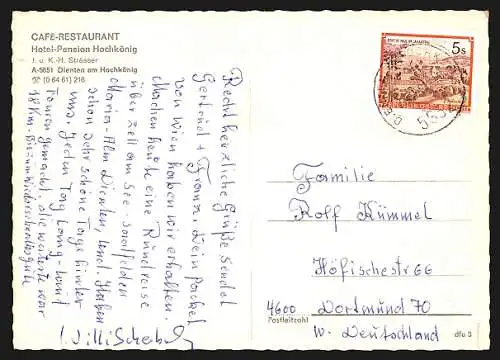 CAFÉ-RESTAURANT
Hotel-Pension Hochkönig
J. u. K.-H. Strasser
A-5651 Dienten am Hochkönig
☎ (0 64 61) 216
5s
REPUBLIK ÖSTERREICH
Recht herzliche Grüße sendet
Gertrud + Franz. Dein Packet
von Wien haben wir erhalten.
Machen heute eine Rundreise
über Zell am See - Saalfelden
Maria-Alm Dienten, und haben
schon sehr schöne Tage hinter
uns. Jeden Tag Lang-
Touren gemacht, die weiteste war
18 Km. Bis zum Wiedersehen alles gute
Familie
Rolf Kümmel
Höfischestr 66
4600 Dortmund 70
Postleitzahl
W. Deutschland
dfu 3